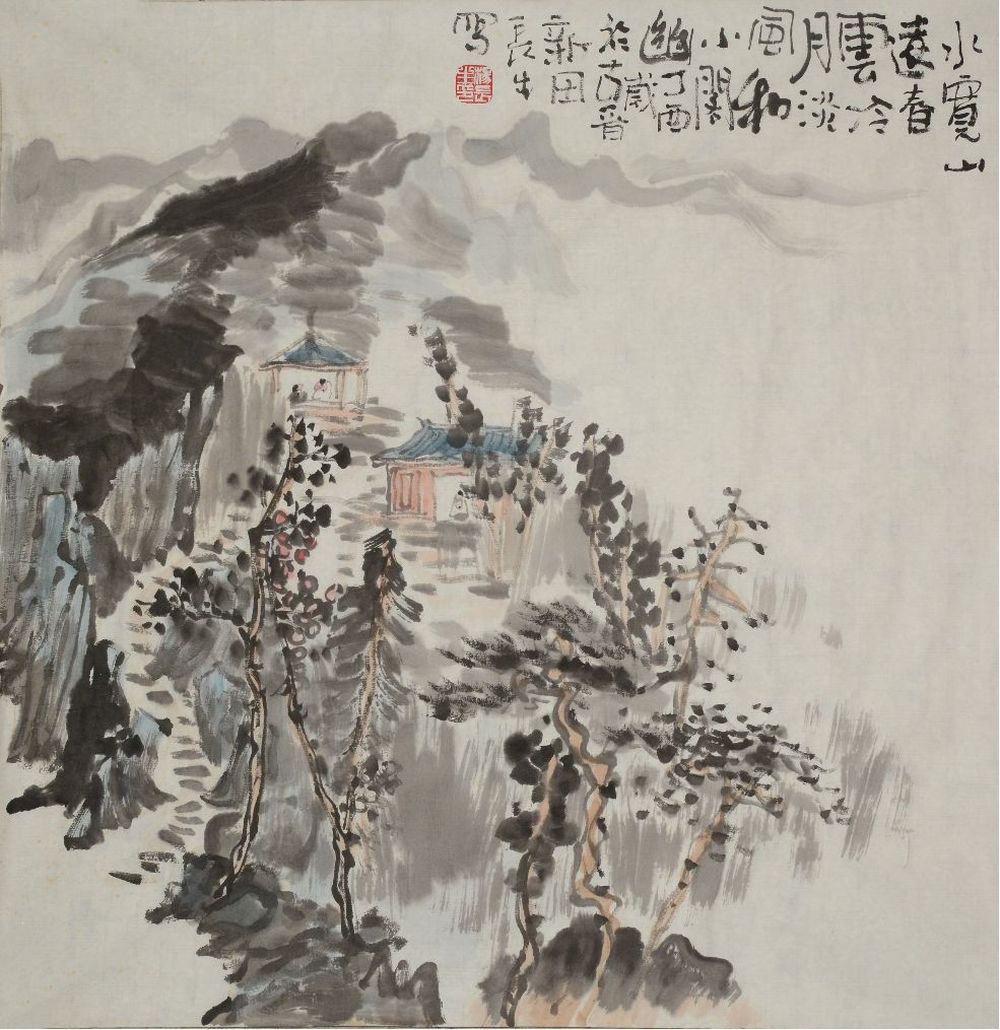 水寬山
遠春
雲冷
月淡
風和
小閣
幽丁酉歲
於古晋
新田
長生
寫